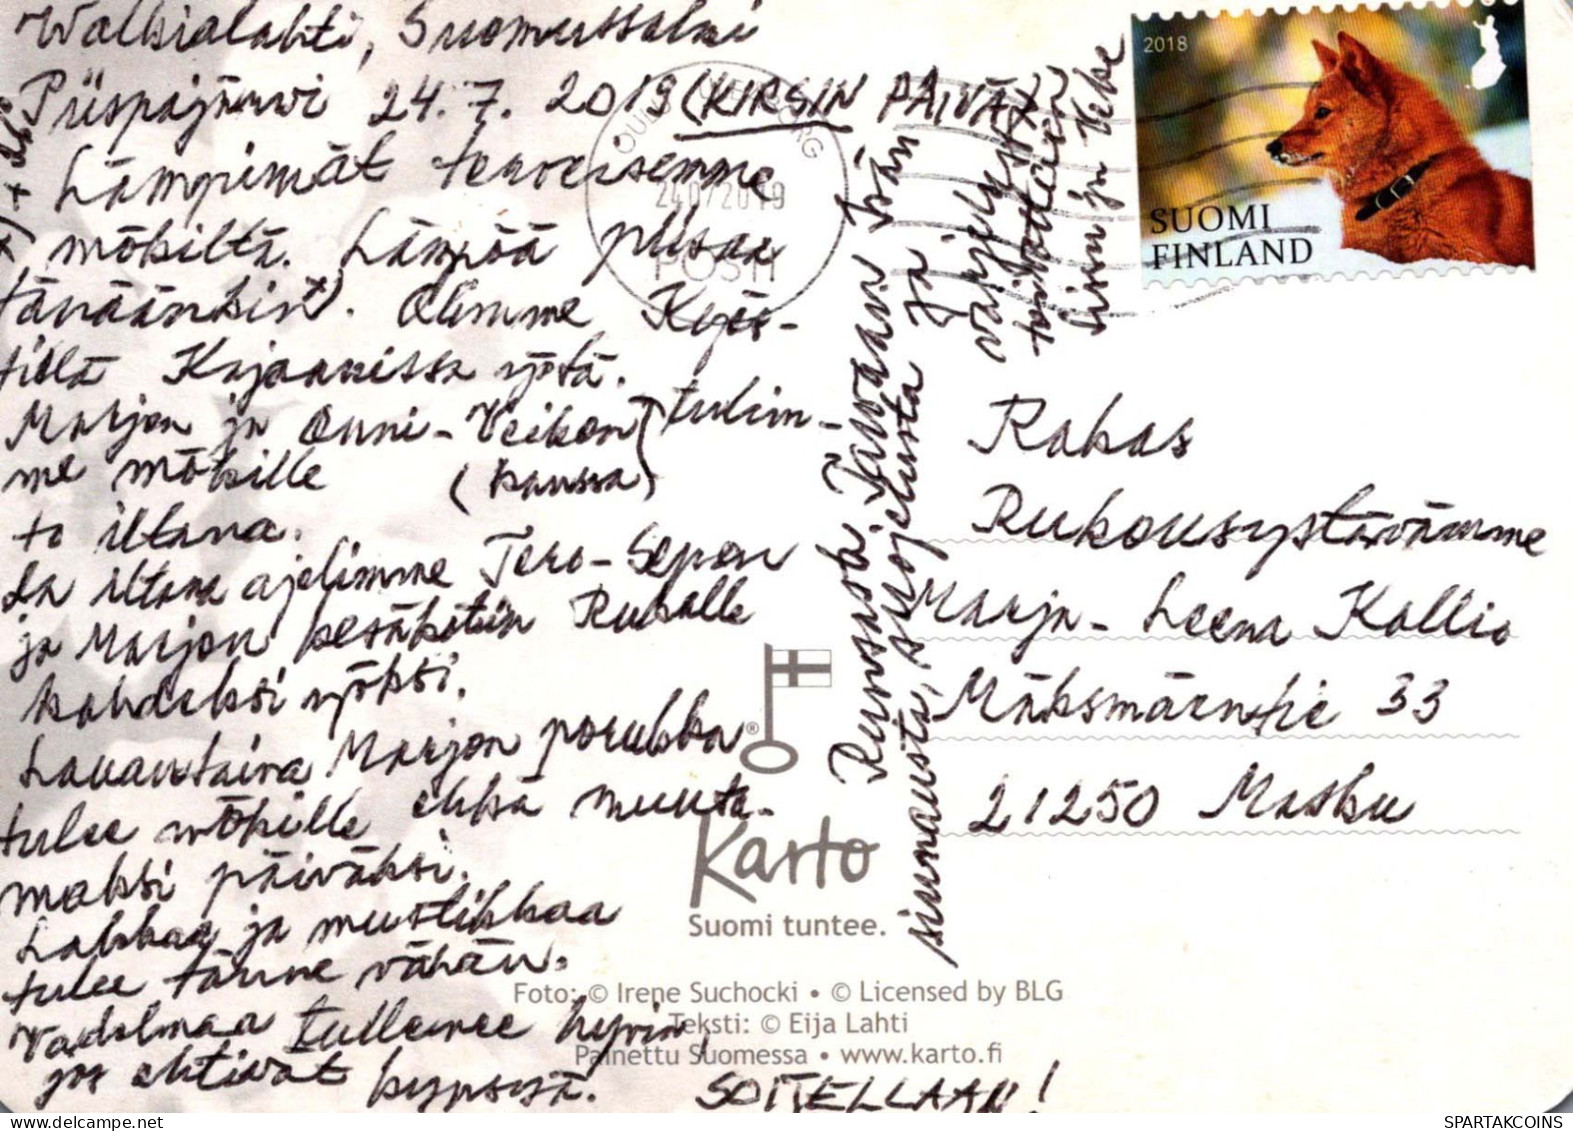 Valkialahti, Suomussalmi
Piispajärvi 24.7.2019 (KIRSIN PÄIVÄ)
Lämpimät terveisemme
mökiltä. Lämpöä piisaa
tänäänkin x). Olimme Kyös-
tillä Kajaanissa yötä.
Marjon ja Onni-Veikon tulim-
me mökille (kanssa)
to iltana.
La iltana ajelimme Tero-Sepon
ja Marjon kesäkotiin Rukalle
kahdeksi yöksi.
Lauantaina Marjon porukka
tulee mökille ehkä muuta-
maksi päiväksi.
Lakkaa ja mustikkaa
tulee tänne vähän.
Vadelmaa tullenee hyvin,
jos ehtivät kypsyä. SOITELLAAN!
Runsasta Taivaan Isän
siunausta, suojelusta ja
varjelusta
toivottaen
Sirin ja Veke
2018
SUOMI
FINLAND
24072019
POSTI
Rakas
Rukousystävämme
Marja-Leena Kallio
Mäksmäentie 33
21250 Masku
®
Karto
Suomi tuntee.
Foto: © Irene Suchocki • © Licensed by BLG
Teksti: © Eija Lahti
Painettu Suomessa • www.karto.fi
SPARTAKCOINS